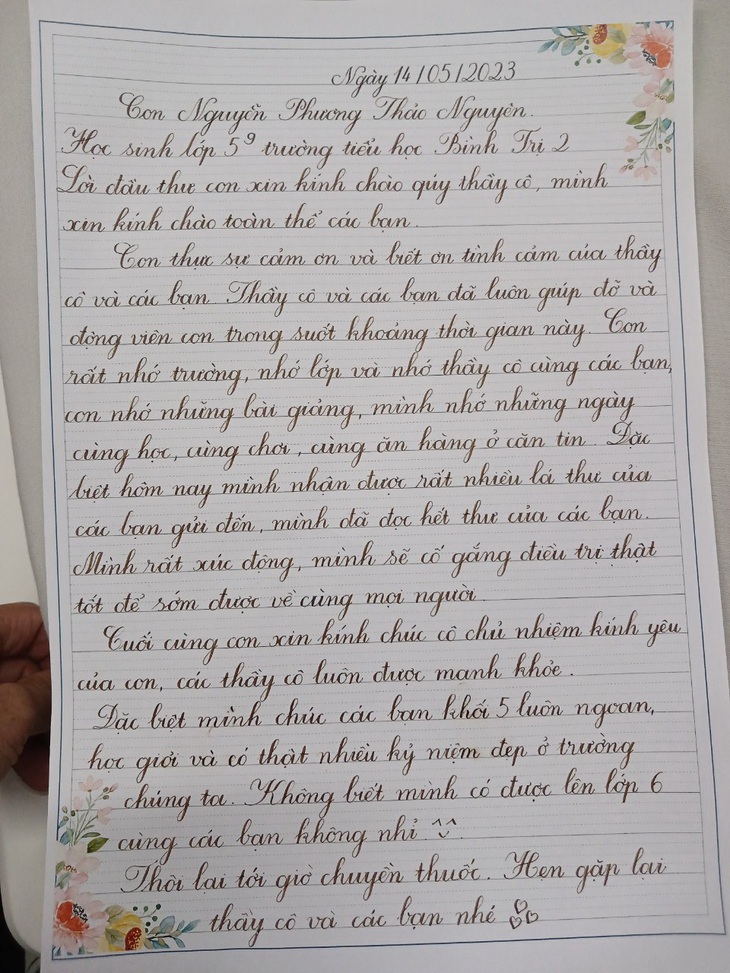 Ngày 14/05/2023
Con Nguyễn Phương Thảo Nguyên.
Học sinh lớp 5⁹ trường tiểu học Bình Trị 2
Lời đầu thư con xin kính chào qúy thầy cô, mình
xin kính chào toàn thể các bạn.
Con thực sự cảm ơn và biết ơn tình cảm của thầy
cô và các bạn. Thầy cô và các bạn đã luôn giúp đỡ và
động viên con trong suốt khoảng thời gian này. Con
rất nhớ trường, nhớ lớp và nhớ thầy cô cùng các bạn,
con nhớ những bài giảng, mình nhớ những ngày
cùng học, cùng chơi, cùng ăn hàng ở căn tin. Đặc
biệt hôm nay mình nhận được rất nhiều lá thư của
các bạn gửi đến, mình đã đọc hết thư của các bạn.
Mình rất xúc động, mình sẽ cố gắng điều trị thật
tốt để sớm được về cùng mọi người.
Cuối cùng con xin kính chúc cô chủ nhiệm kính yêu
của con, các thầy cô luôn được mạnh khỏe.
Đặc biệt mình chúc các bạn khối 5 luôn ngoan,
học giỏi và có thật nhiều kỷ niệm đẹp ở trường
chúng ta. Không biết mình có được lên lớp 6
cùng các bạn không nhỉ ^^.
Thôi lại tới giờ chuyền thuốc. Hẹn gặp lại
thầy cô và các bạn nhé ♡♡♡